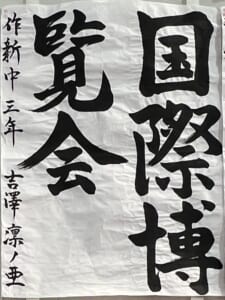 国際博
覧会
作新中三年 吉澤凛ノ亜